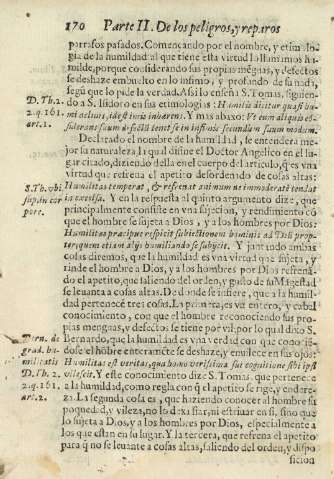 170 Parte II. De los peligros, y reparos
parrafos pasados. Començando por el nombre, y etimologia
de la humildad al que tiene esta virtud llamamos humilde,
porque considerando sus propias mẽguas, y defectos
se deshaze embuelto en lo infimo, y profundo de su nada,
segũ que lo pide la verdad. Assi lo enseña S. Tomas, siguiendo
a S. Isidoro en sus etimologias: Humilis dicitur quasi humi
acliuis, idest imis inhærens. Y mas abaxo: Vt cum aliquis considerans
suum defectũ tenet se in infimis secundum suum modum.
D. Th. 2.
2. q. 161.
art. 1.
Declarado el nombre de la humildad, se entendera mejor
la naturaleza; la qual dize el Doctor Angelico en el lugar
citado, diziendo della en el cuerpo del articulo, q̃ es vna
virtud que refrena el apetito desordenado de cosas altas:
Humilitas temperat, & refrenat animum ne immoderatè tendat
in excelsa. Y en la respuesta al quinto argumento dize, que
principalmente consiste en vna sujecion, y rendimiento cõ
que el hombre se sujeta a Dios, y a los hombres por Dios:
S. Th. vbi
sup. in cor
pore.
Humilitas præcipue respicit subiectionem hominis ad Deũ propter
quem etiam alijs humiliando se subijcit. Y juntando ambas
cosas diremos, que la humildad es vna virtud que sujeta, y
rinde el hombre a Dios, y a los hombres por Dios refrenãdo
el apetito, que saliendo del orden, y gusto de su Magestad
se leuanta a cosas altas. De donde se infiere, que a la humildad
pertenecē tres cosas. La primera, es vn entero, y cabal
conocimiento, con que el hombre reconociendo sus propias
menguas, y defectos se tiene por vil; por lo qual dixo S.
Bernardo, que la humildad es vna verdad con que conociẽdose
el hõbre enteramẽte se deshaze, y enuilece en sus ojos:
Bern. de
grad. humilitatis
Humilitas est veritas, qua homo verissima sui cognitione sibi ipsi
vilescit. Y este conocimiento dize S. Tomas, que pertenece
a la humildad, como regla con q̃ el apetito se rige, y endereza.
D. Th. 2.
2. q. 161.
ar. 2.
La segunda cosa es, que haziendo conocer al hombre su
poquedad, y vileza, no lo dexa fiar, ni estriuar en si, sino que
lo sujeta a Dios, y a los hombres por Dios, especialmente a
los que estan en su lugar. Y la tercera, que refrena el apetito
para q̃ no se leuante a cosas altas, saliendo del orden, y dispo
sicion